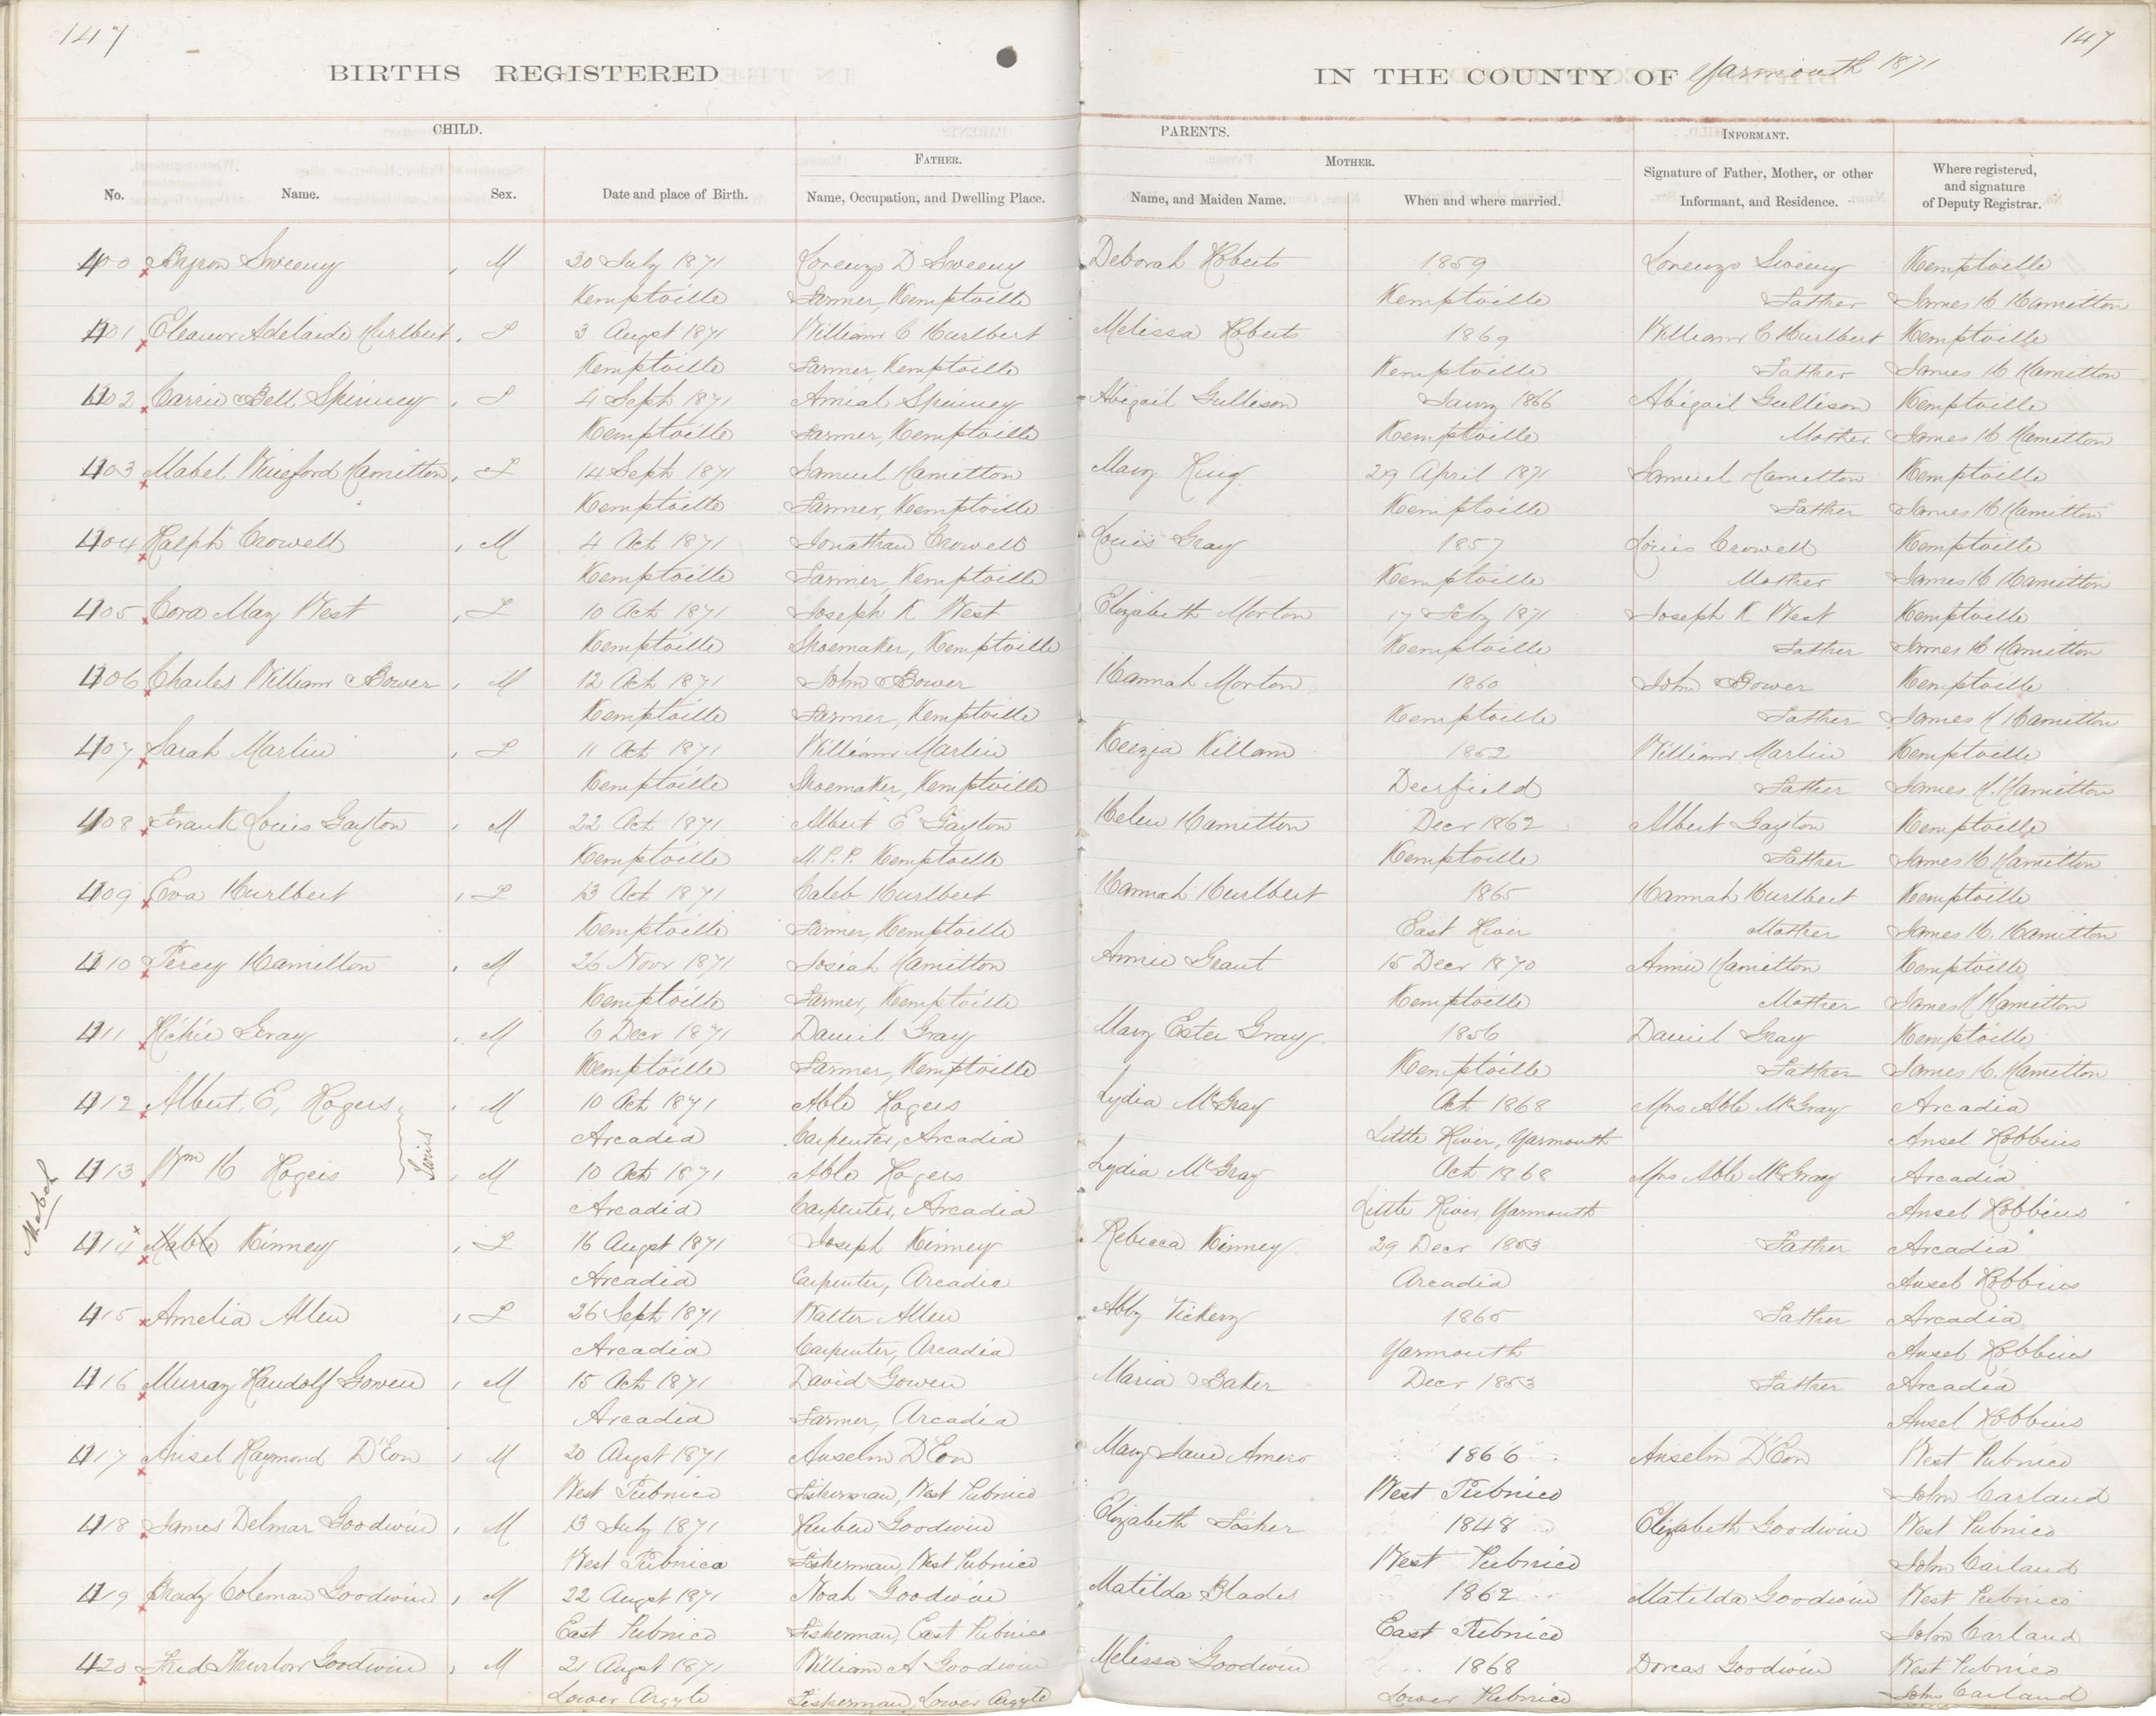 147
147
BIRTHS REGISTERED
IN THE COUNTY OF Yarmouth 1871
CHILD.
PARENTS.
INFORMANT.
FATHER.
MOTHER.
No.
Name.
Sex.
Date and place of Birth.
Name, Occupation, and Dwelling Place.
Name, and Maiden Name.
When and where married.
Signature of Father, Mother, or other
Informant, and Residence.
Where registered,
and signature
of Deputy Registrar.
400 Byron Sweeny , M 30 July 1871 Lorenzo D Sweeny Deborah Roberts 1859 Lorenzo Sweeny Kemptville
Kemptville Farmer, Kemptville Kemptville Father James H Hamilton
401 Eleanor Adelaide Hurlbert , F 3 Augst 1871 William C Hurlbert Melissa Roberts 1869 William C Hurlbert Kemptville
Kemptville Farmer, Kemptville Kemptville Father James H Hamilton
402 Carrie Bell Spinney , F 4 Sept 1871 Amial Spinney Abigail Gullison Jany 1866 Abigail Gullison Kemptville
Kemptville Farmer, Kemptville Kemptville Mother James H Hamilton
403 Mabel Hamilton , F 14 Sept 1871 Samuel Hamilton Mary King 29 April 1871 Samuel Hamilton Kemptville
Kemptville Farmer, Kemptville Kemptville Father James H Hamilton
404 Ralph Crowell , M 4 Oct 1871 Jonathan Crowell Louis Gray 1857 Louis Crowell Kemptville
Kemptville Farmer, Kemptville Kemptville Mother James H Hamilton
405 Cora May West , F 10 Oct 1871 Joseph K West Elizabeth Morton 17 Feby 1871 Joseph K West Kemptville
Kemptville Shoemaker, Kemptville Kemptville Father James H Hamilton
406 Charles William Bower , M 12 Oct 1871 John Bower Hannah Morton 1860 John Bower Kemptville
Kemptville Farmer, Kemptville Kemptville Father James H Hamilton
407 Sarah Marlin , F 11 Oct 1871 William Marlin Keezia Killam 1852 William Marlin Kemptville
Kemptville Shoemaker, Kemptville Deerfield Father James H. Hamilton
408 Frank Louis Gayton , M 22 Oct 1871 Albert E Gayton Helen Hamilton Decr 1862 Albert Gayton Kemptville
Kemptville M.P.P. Kemptville Kemptville Father James H Hamilton
409 Eva Hurlbert , F 13 Oct 1871 Caleb Hurlbert Hannah Hurlbert 1865 Hannah Hurlbert Kemptville
Kemptville Farmer, Kemptville East River Mother James H. Hamilton
410 Percy Hamilton , M 26 Novr 1871 Josiah Hamilton Annie Grant 15 Decr 1870 Annie Hamilton Kemptville
Kemptville Farmer, Kemptville Kemptville Mother James H Hamilton
411 Richie Gray , M 6 Decr 1871 Daniel Gray Mary Ester Gray 1856 Daniel Gray Kemptville
Kemptville Farmer, Kemptville Kemptville Father James H. Hamilton
412 Albert. E, Rogers , M 10 Oct 1871 Able Rogers Lydia McGray Oct 1868 Mrs Able McGray Arcadia
Arcadia Carpenter, Arcadia Little River, Yarmouth Ansel Robbins
Twins
413 Wm H Rogers , M 10 Oct 1871 Able Rogers Lydia McGray Oct 1868 Mrs Able McGray Arcadia
Arcadia Carpenter, Arcadia Little River, Yarmouth Ansel Robbins
Mabel
414 Mable Kinney , F 16 Augst 1871 Joseph Kinney Rebecca Kinney 29 Decr 1853 Father Arcadia
Arcadia Carpenter, Arcadia Arcadia Ansel Robbins
415 Amelia Allen , F 26 Sept 1871 Walter Allen Abby Vickery 1865 Father Arcadia
Arcadia Carpenter, Arcadia Yarmouth Ansel Robbins
416 Murray Randolf Gowen , M 15 Oct 1871 David Gowen Maria Baker Decr 1853 Father Arcadia
Arcadia Farmer, Arcadia Ansel Robbins
417 Ansel Raymond D'Eon , M 20 Augst 1871 Anselm D'Eon Mary Jane Amero 1866 Anselm D'Eon West Pubnico
West Pubnico Fisherman, West Pubnico West Pubnico John Carland
418 James Delmar Goodwin , M 13 July 1871 Reuben Goodwin Elizabeth Fisher 1848 Elizabeth Goodwin West Pubnico
West Pubnico Fisherman, West Pubnico West Pubnico John Carland
419 Brady Coleman Goodwin , M 22 Augst 1871 Noah Goodwin Matilda Blades 1862 Matilda Goodwin West Pubnico
East Pubnico Fisherman, East Pubnico East Pubnico John Carland
420 Fred Thurlow Goodwin , M 21 Augst 1871 William A Goodwin Melissa Goodwin 1868 Dorcas Goodwin West Pubnico
Lower Argyle Fisherman, Lower Argyle Lower Pubnico John Carland